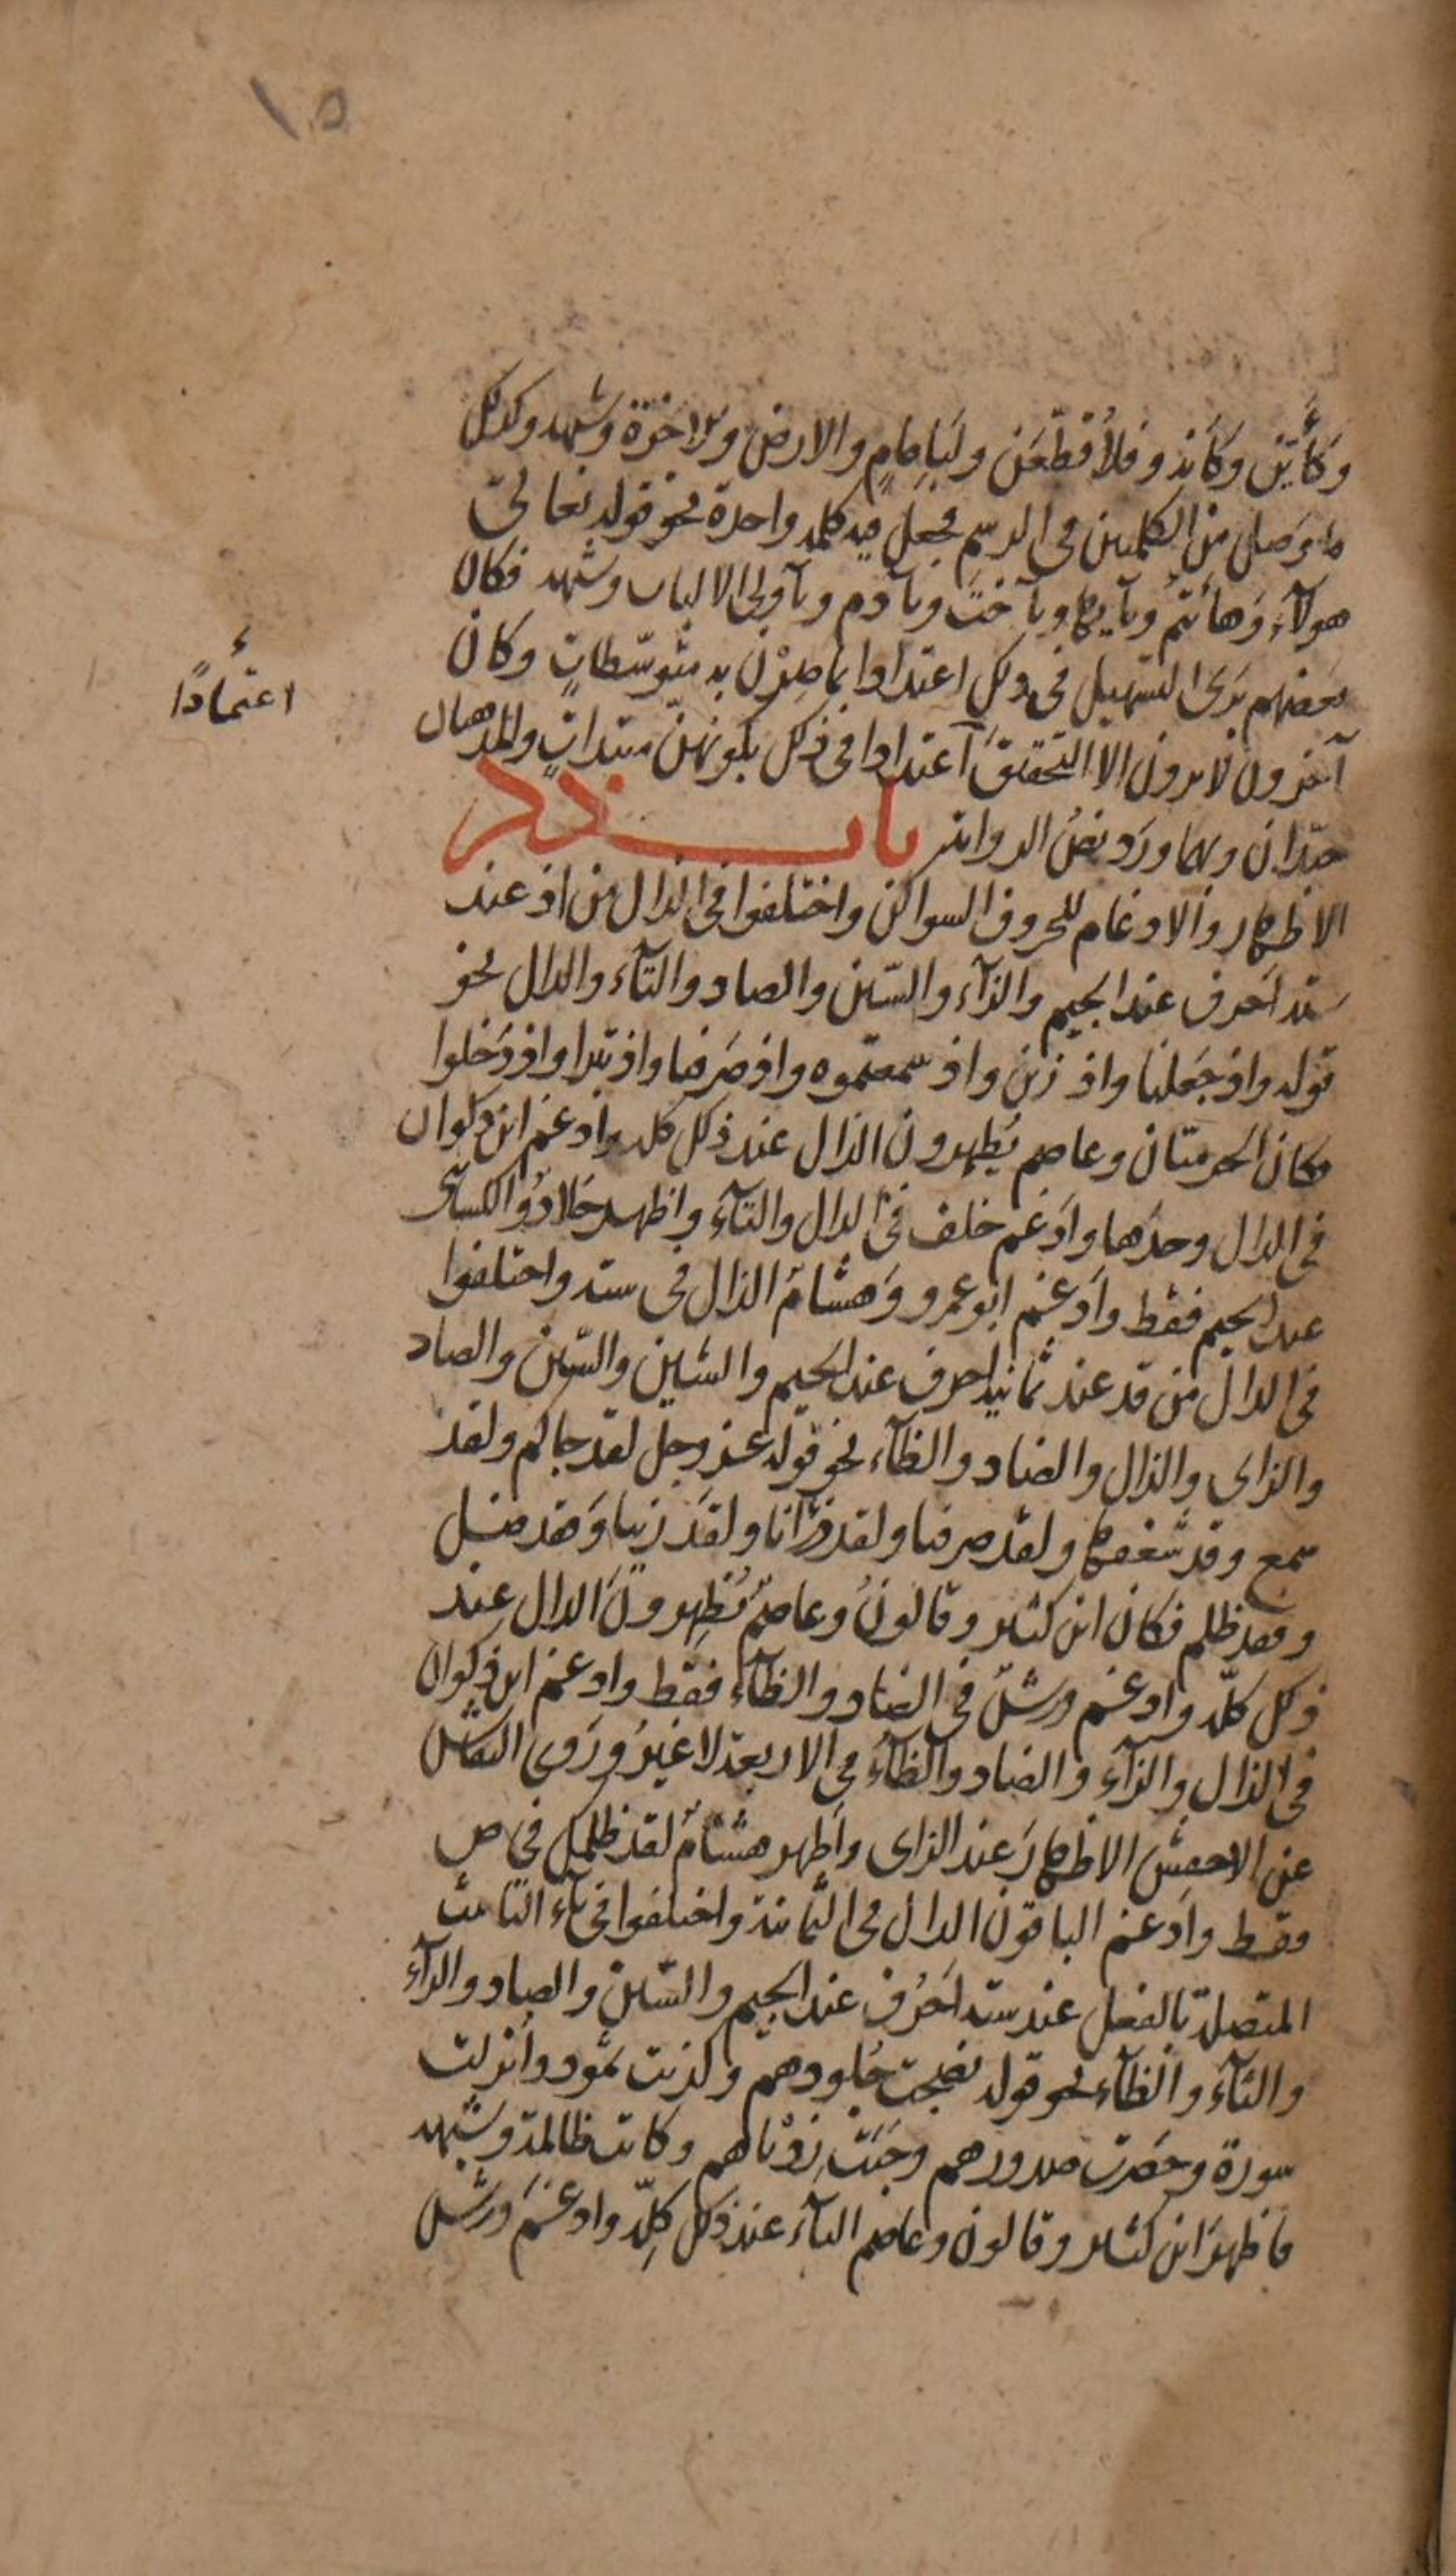 ١٥
وكأين وكأنه و فلأقطعن ولبإمام والارض والاخرة وشبهه وكذلك
ما وصل من الكلمتين في الرسم فجعل فيه كلمة واحدة نحو قوله تعالى
هولآء وهأنتم ويأيها ويآ خت ويآدم ويآولى الالباب وشبهه فكان
بعضهم يرى التسهيل في ذلك اعتدادا بما صرن به متوسطات وكان
اعتمادًا
آخرون لا يرون الا التحقيق اعتدادا في ذلك بكونهن مبتدات والمذهبان
جيدان وبهما ورد نص الرواية باب ذكر
الاظهار والادغام للحروف السواكن واختلفوا في الذال من اذ عند
ستة احرف عند الجيم والزاء والسين والصاد والتآء والدال نحو
قوله واذ جعلنا واذ زين واذ سمعتموه واذ صرفنا واذ تبرا واذ دخلوا
فكان الحرميان وعاصم يظهرون الذال عند ذلك كله وادغم ابن ذكوان
في الدال وحدها وادغم خلف في الدال والتآء واظهر خلاد والكسائى
عند الجيم فقط وادغم ابو عمرو وهشام الذال في الستة واختلفوا
في الدال من قد عند ثمانية احرف عند الجيم والشين والسين والصاد
والزاى والذال والضاد والظآء نحو قوله عز وجل لقد جاكم ولقد
سمع وقد شغفها ولقد صرفنا ولقد ذرانا ولقد زينا وفقد ضل
وفقد ظلم فكان ابن كثير وقالون وعاصم يظهرون الدال عند
ذلك كله وادغم ورش في الضاد والظآء فقط وادغم ابن ذكوان
في الذال والزآء والضاد والظآء في الاربعة لا غير وروى النقاش
عن الاخفش الاظهار عند الزاى واظهر هشام لقد ظلمك في ص
فقط وادغم الباقون الدال في الثمانية واختلفوا في تآء التانيث
المتصلة بالفعل عند ستة احرف عند الجيم والسين والصاد والزآء
والثآء والظآء نحو قوله نضجت جلودهم وكذبت ثمود وأنزلت
سورة وحصرت صدورهم وخبت زدناهم وكانت ظالمة وشبهه
فاظهر ابن كثير وقالون وعاصم التآء عند ذلك كله وادغم ورش